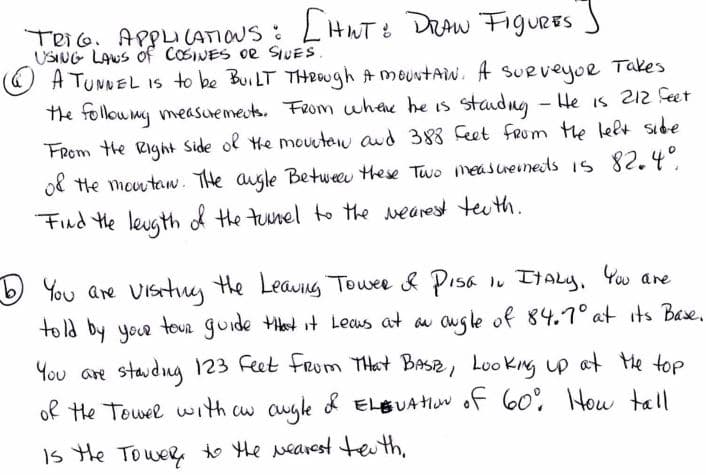 TRIG. APPLICATIONS: [HINT: DRAW FIGURES]
USING LAWS OF COSINES OR SINES.
(a) A TUNNEL IS to be BUILT THROUGH A MOUNTAIN. A SURVEYOR Takes
the following measurements. From where he is standing - He is 212 feet
FROM the Right side of the mountain and 388 feet from the left side
of the mountain. The angle Between these Two measurements is 82.4°.
Find the length of the tunnel to the nearest tenth.
(b) You are visiting the Leaning Tower of PISA in ITALY. You are
told by your tour guide that it Leans at an angle of 84.7° at its Base.
You are standing 123 feet from THAT BASE, Looking up at the top
of the Tower with an angle of ELEVATION of 60°. How tall
is the Tower to the nearest tenth.